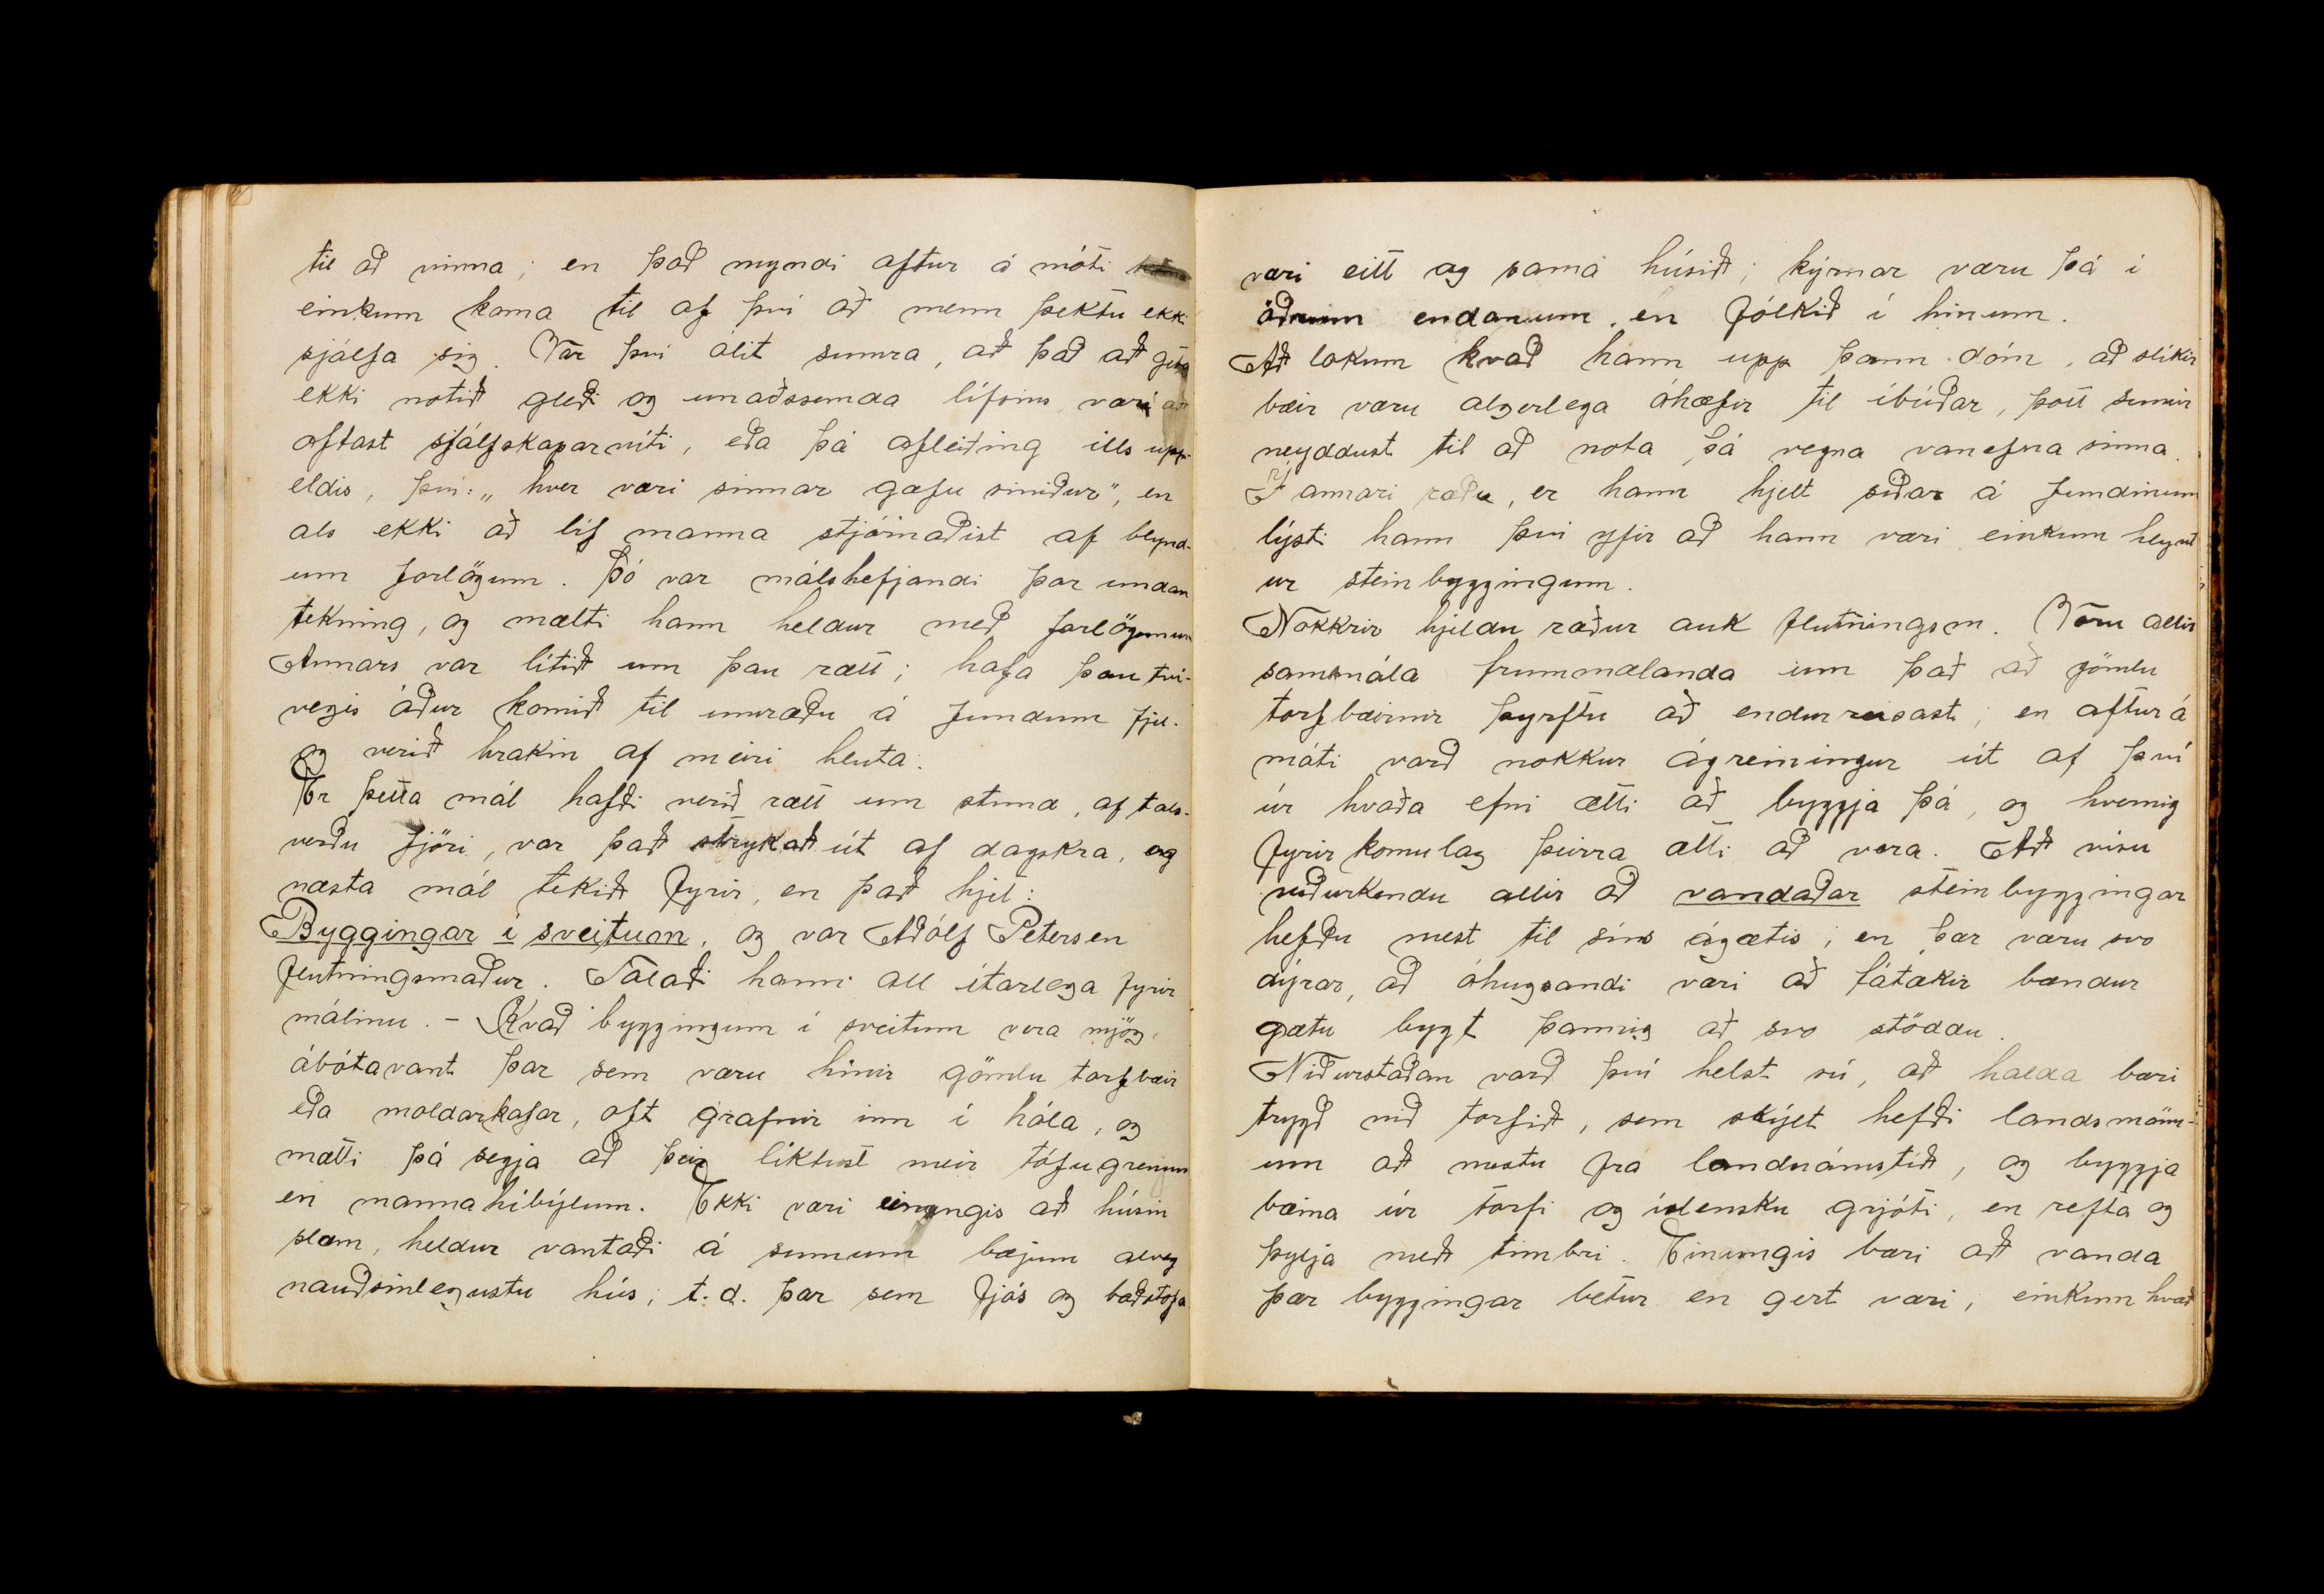 til að vinna; en það myndi aftur á móti
einkum koma til af því að menn þektu ekki
sjálfa sig. Var því álit sumra, að það að geta
ekki notið gleði og unaðssemda lífsins væri að
oftast sjálfskaparvíti, eða þá afleiðing ills upp-
eldis, því: „hver væri sinnar gæfu smiður", en
als ekki að líf manna stjórnaðist af blynd-
um forlögum. Þó var málshefjandi þar undan
tekning, og mælti hann heldur með forlögunum
Annars var lítið um þau rætt; hafa þau tví-
vegis áður komið til umræðu á fundum fjel.
og verið hrakin af meiri hluta.
Er þetta mál hafði verið rætt um stund, af tals-
verðu fjöri, var það strykað út af dagskra, og
næsta mál tekið fyrir, en það hjet:
Byggingar í sveitum, og var Adólf Petersen
flutningsmaður. Talaði hann all ítarlega fyrir
málinu. - Kvað byggingum í sveitum vera mjög
ábótavant þar sem væru hinir gömlu torfbæir
eða moldarkofar, oft grafnir inn í hóla, og
mætti þá segja að þeir líktust meir tófugrenjum
en mannahíbýlum. Ekki væri einungis að húsin
slæm, heldur vantaði á sumum bæjum alveg
nauðsinlegustu hús; t.d. þar sem fjós og baðstofa
væri eitt og sama húsið; kýrnar væru þá í
öðrum endanum en fólkið í hinum.
Að lokum kvað hann upp þann dóm, að slíkir
bæir væru algerlega óhæfir til íbúðar, þótt sumir
neyddust til að nota þá vegna vanefna sinna.
Í annari ræðu, er hann hjelt síðar á fundinum
lýsti hann því yfir að hann væri einkum hlynt
ur steinbyggingum.
Nokkrir hjeldu ræður auk flutningsm. Voru allir
sammála frummælanda um það að gömlu
torfbæirnir þyrftu að endurreisast; en aftur á
móti varð nokkur ágreiningur út af því
úr hvaða efni ætti að byggja þá, og hvernig
fyrirkomulag þeirra ætti að vera. Að vísu
viðurkendu allir að vandaðar steinbyggingar
hefðu mest til síns ágætis; en þær væru svo
dýrar, að óhugsandi væri að fátækir bændur
gætu bygt þannig að svo stöddu.
Niðurstaðan varð því helst sú, að halda bæri
trygð við torfið, sem skýlt hefði landsmönn-
um að mestu frá landnámstíð, og byggja
bæina úr torfi og íslensku grjóti, en refta og
þylja með timbri. Einungis bæri að vanda
þær byggingar betur en gert væri, einkum hvað